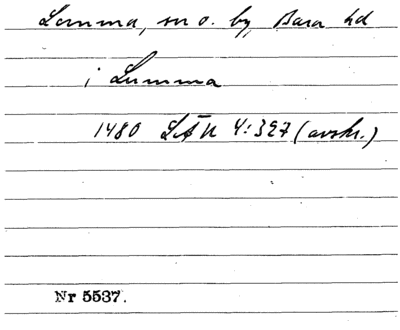 Lomma, sn o. by, Bara hd
i Lumma
1480 LÄU 4:327 (avskr.)
Nr 5537.